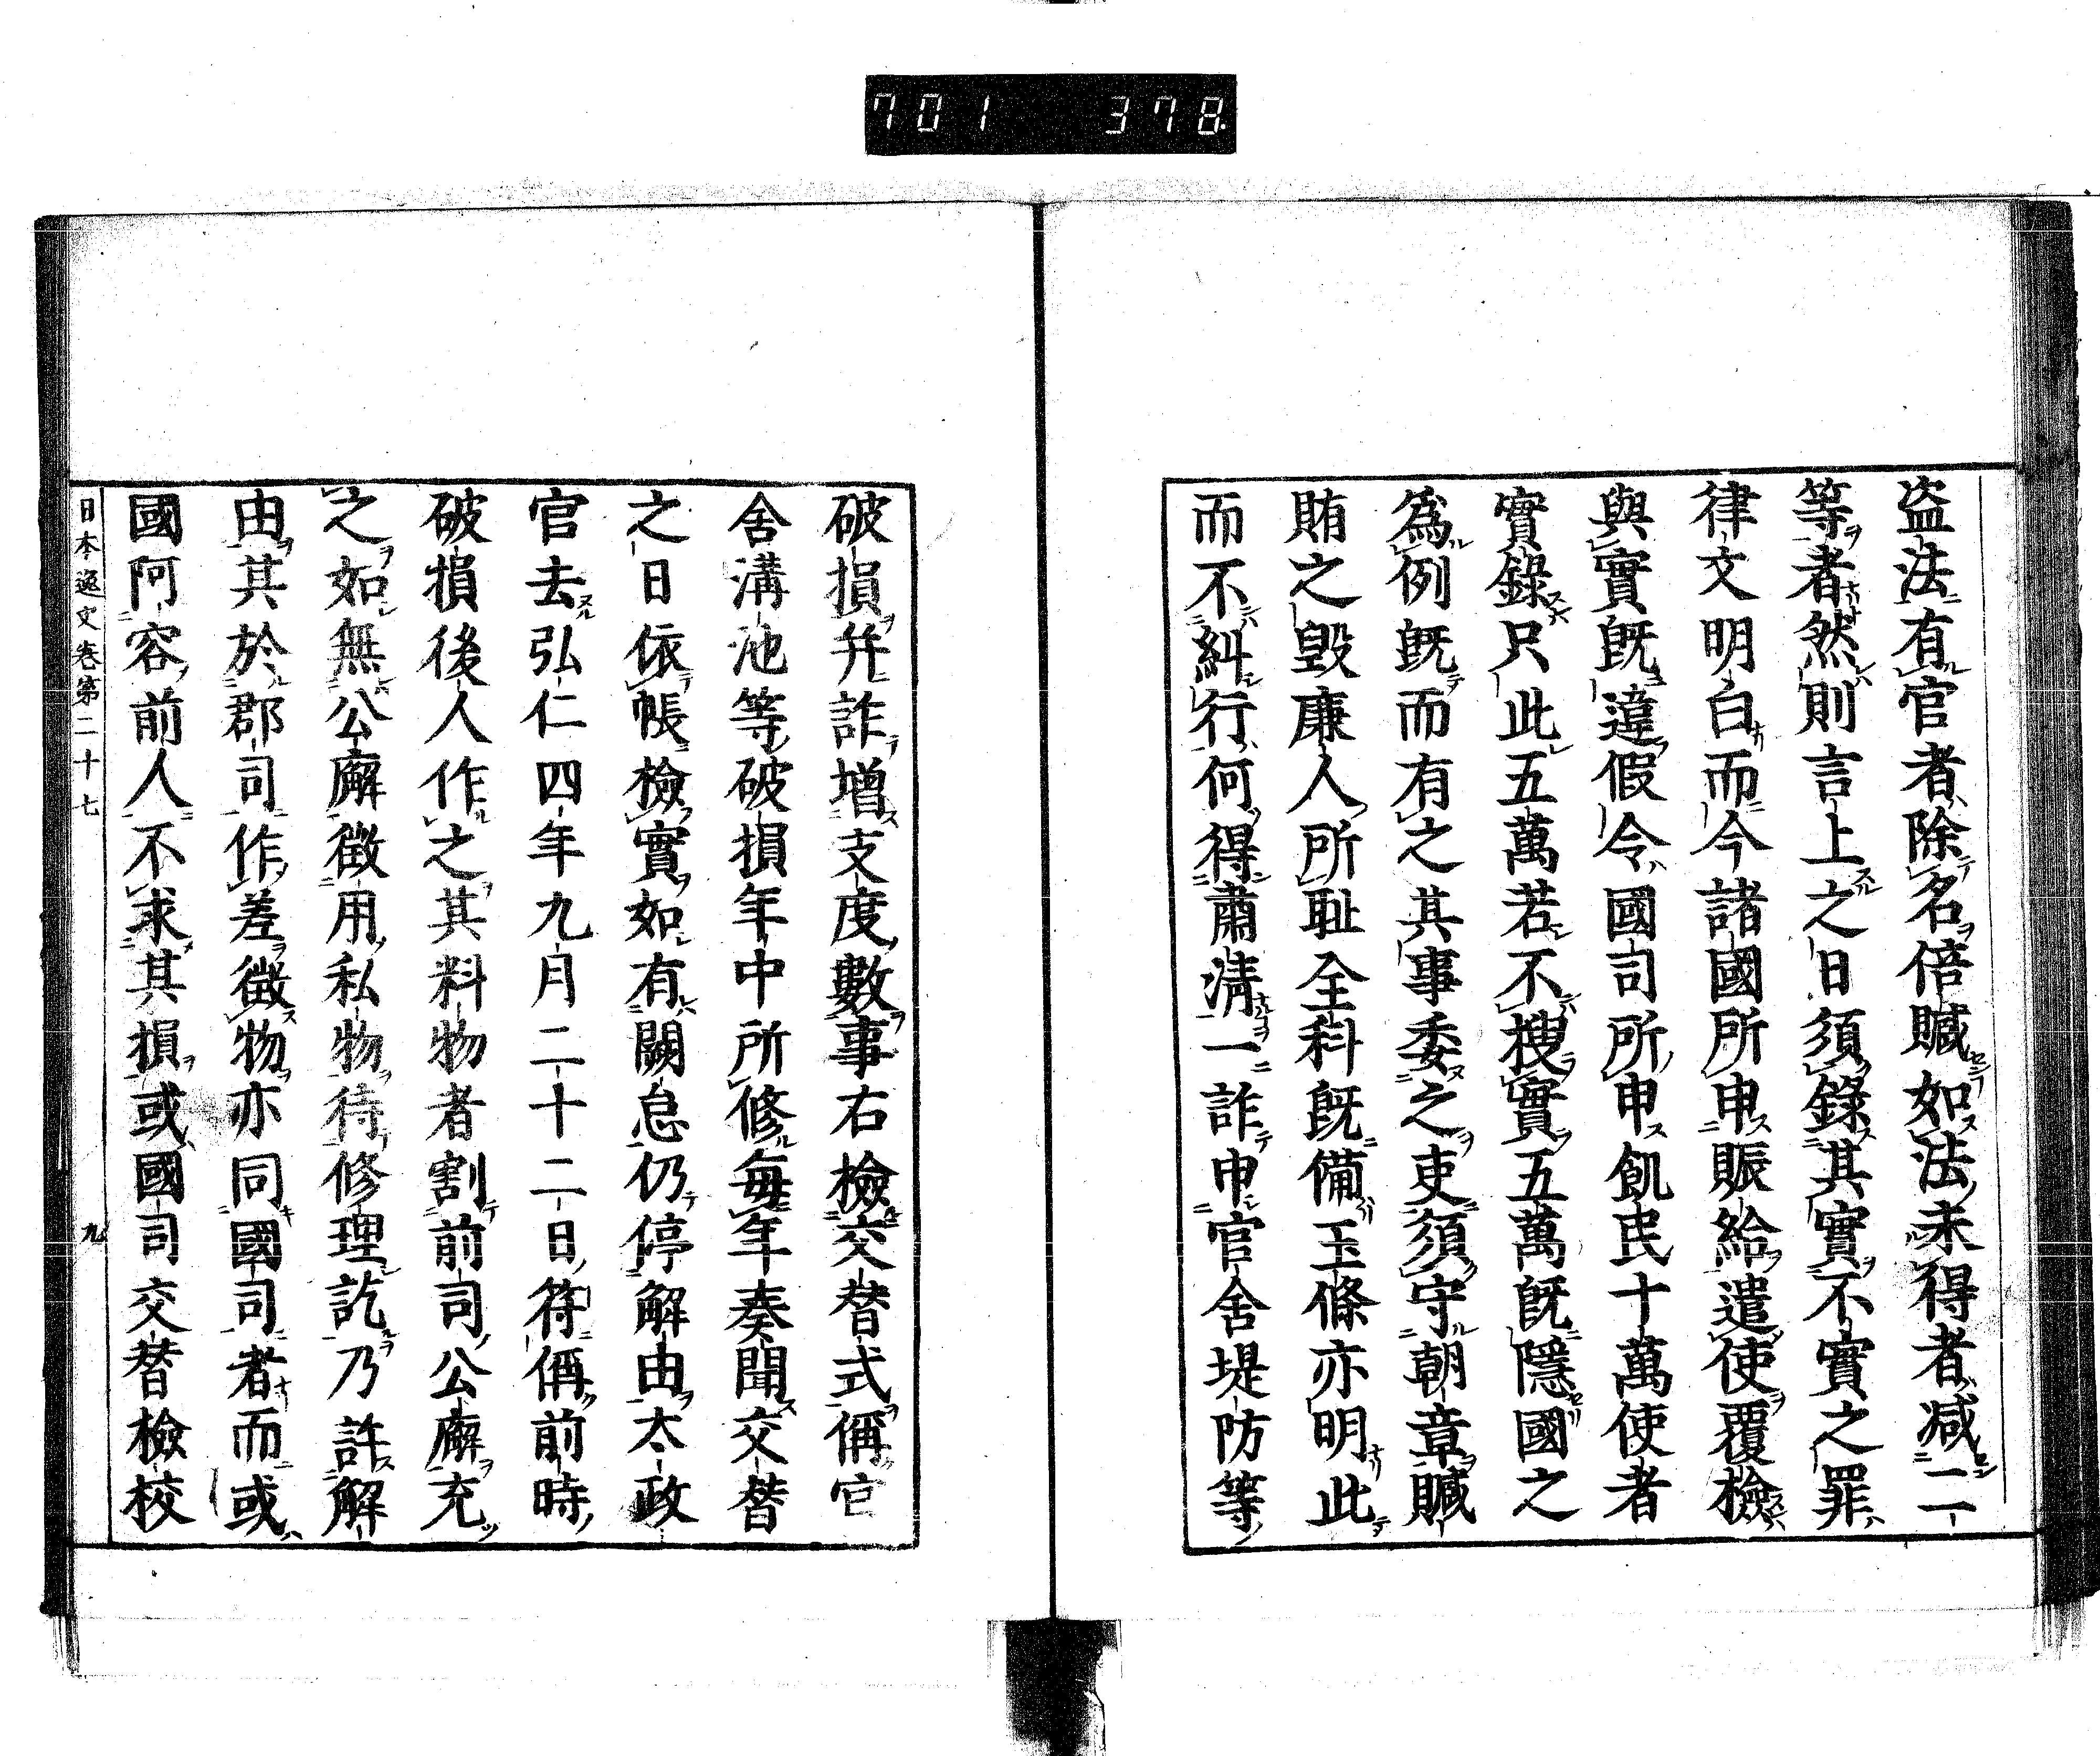 701 378
盗法有官者除名倍贓如法未得者減二
等者然則言上之日須錄其實不實之罪
律文明白而今諸國所申賑給遣使覆檢
與實既違假令國司所申飢民十萬使者
實錄只此五萬若不搜實五萬既隱國之
為例既而有之其事委之吏須守朝章贓
賄之毀廉人所耻全科既備玉條亦明此
而不糾行何得肅淸一詐申官舍堤防等
破損幷詐增支度數事右檢交替式偁官
舍溝池等破損年中所修每年奏聞交替
之日依帳檢實如有闕怠仍停解由太政
官去弘仁四年九月二十二日符偁前時
破損後人作之其料物者割前司公廨充
之如無公廨徵用私物待修理訖乃許解
由其於郡司作差徵物亦同國司者而或
國阿容前人不求其損或國司交替檢校
日本逸文卷第二十七 九